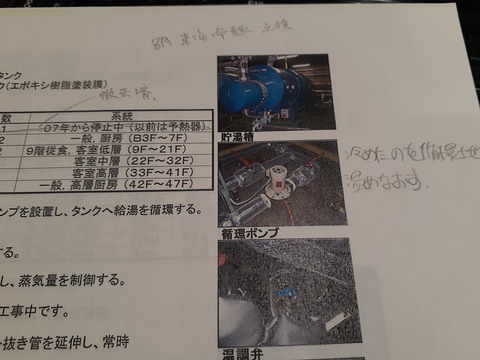 タンク
ク(エポキシ樹脂塗装膜)
数 系統
1 07年から停止中 (以前は予熱器)
2 一般, 厨房 (B3F~7F)
2 9階従食, 客室低層 (9F~21F)
客室中層 (22F~32F)
客室高層 (33F~41F)
一般, 高層厨房 (42F~47F)
ンプを設置し、タンクへ給湯を循環する。
する。
し、蒸気量を制御する。
工事中です。
抜き管を延伸し、常時
貯湯槽
冷めたのを循環させ
温めなおす.
循環ポンプ
温調弁